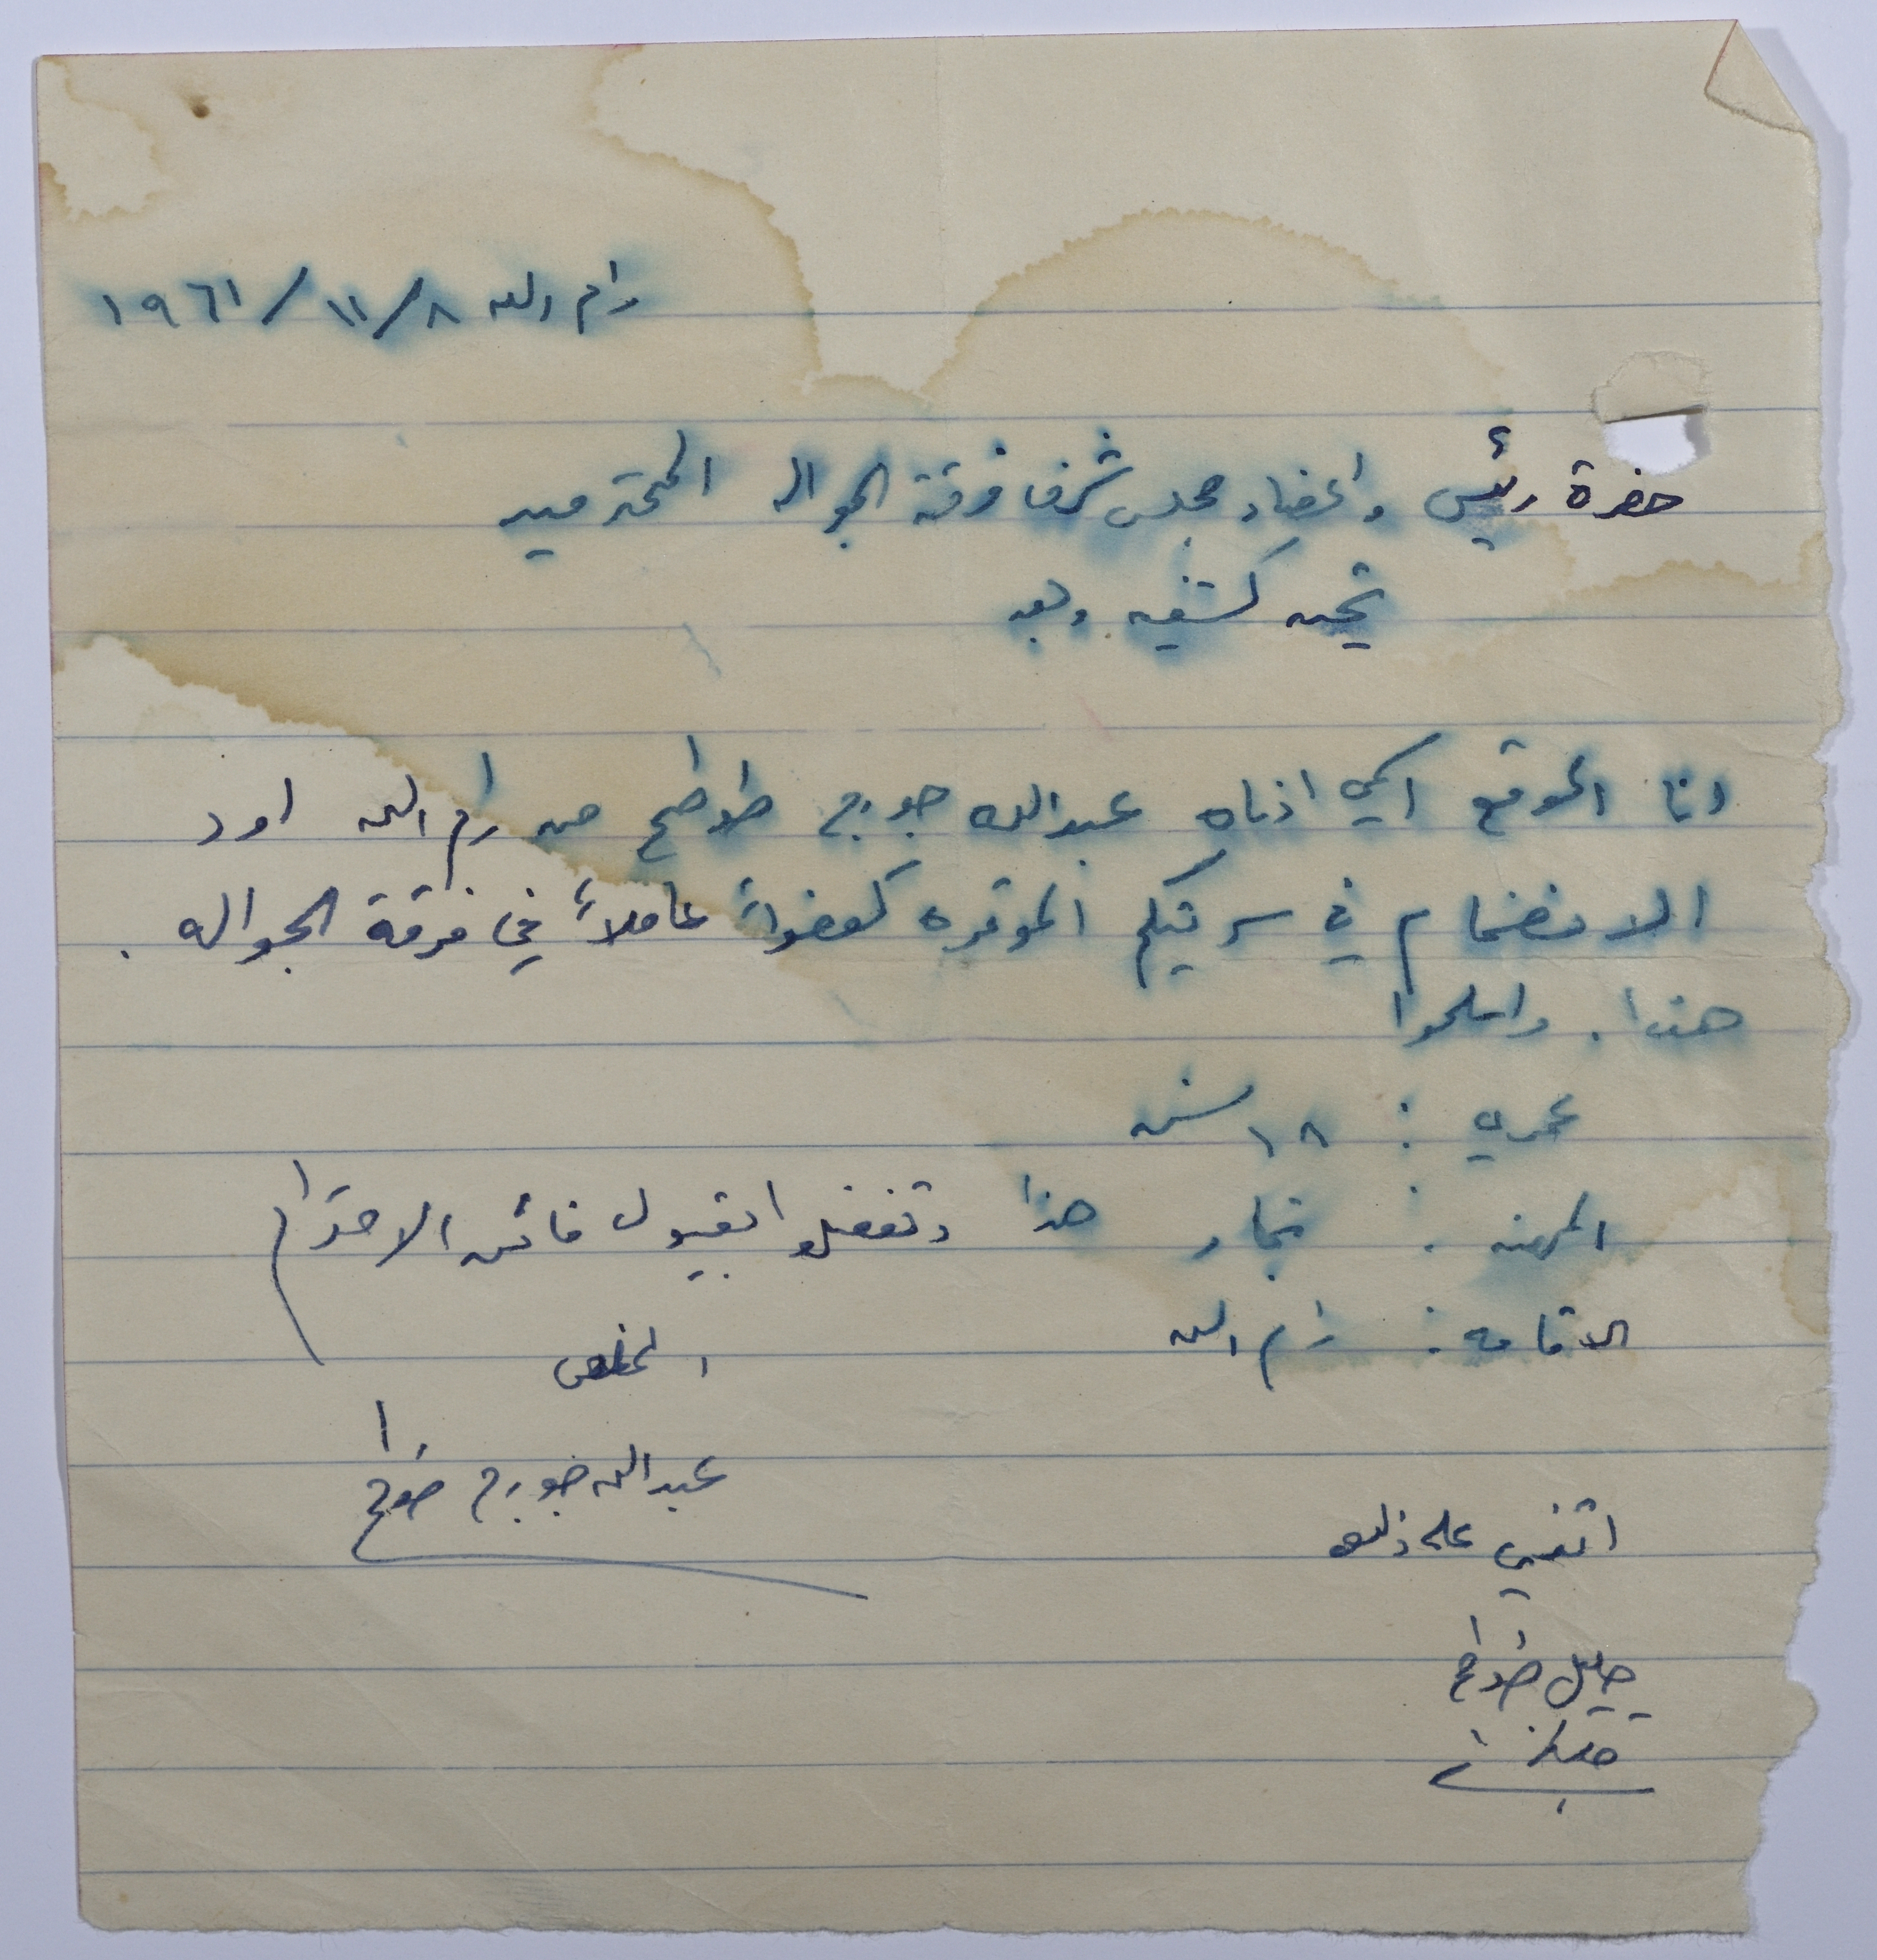 رام الله ٨/١١/١٩٦١
حضرة رئيس واعضاء مجلس شرف فرقة الجواله المحترمين
تحيه كشفيه وبعد
انا الموقع اسمي ادناه عبدالله جورج طوطح من رام الله اود
الانضمام في سريتكم الموقره كعضواً عاملاً في فرقة الجواله .
هذا . واسلموا
عمري : ١٨ سنه
المهنه : نجار هذا وتفضلوا بقبول فائق الاحترام
الاقامه : رام الله
المخلص
عبدالله جورج طوطح
اثني على ذلك
جليل